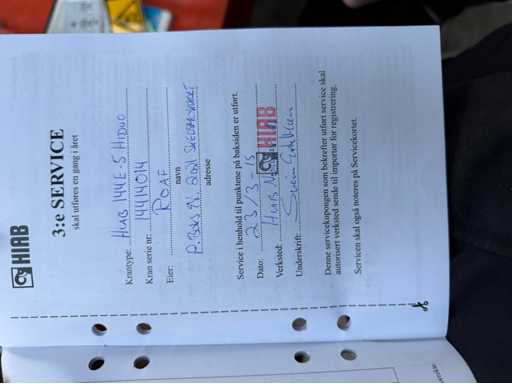 HIAB
3:e SERVICE
skal utføres en gang i året
Krantype: HIAB 144 E-5 HIDUO
Kran serie nr: 14414014
Eier: ROAF
navn
P. Boks
adresse
Service i henhold til punktene på baksiden er utført.
Dato: 23/3-15
Verksted: HIAB
HIAB
Underskrift: Svein
Denne servicekupongen som bekrefter utført service skal
autorisert verksted sende til importør for registrering.
Servicen skal også noteres på Servicekortet.